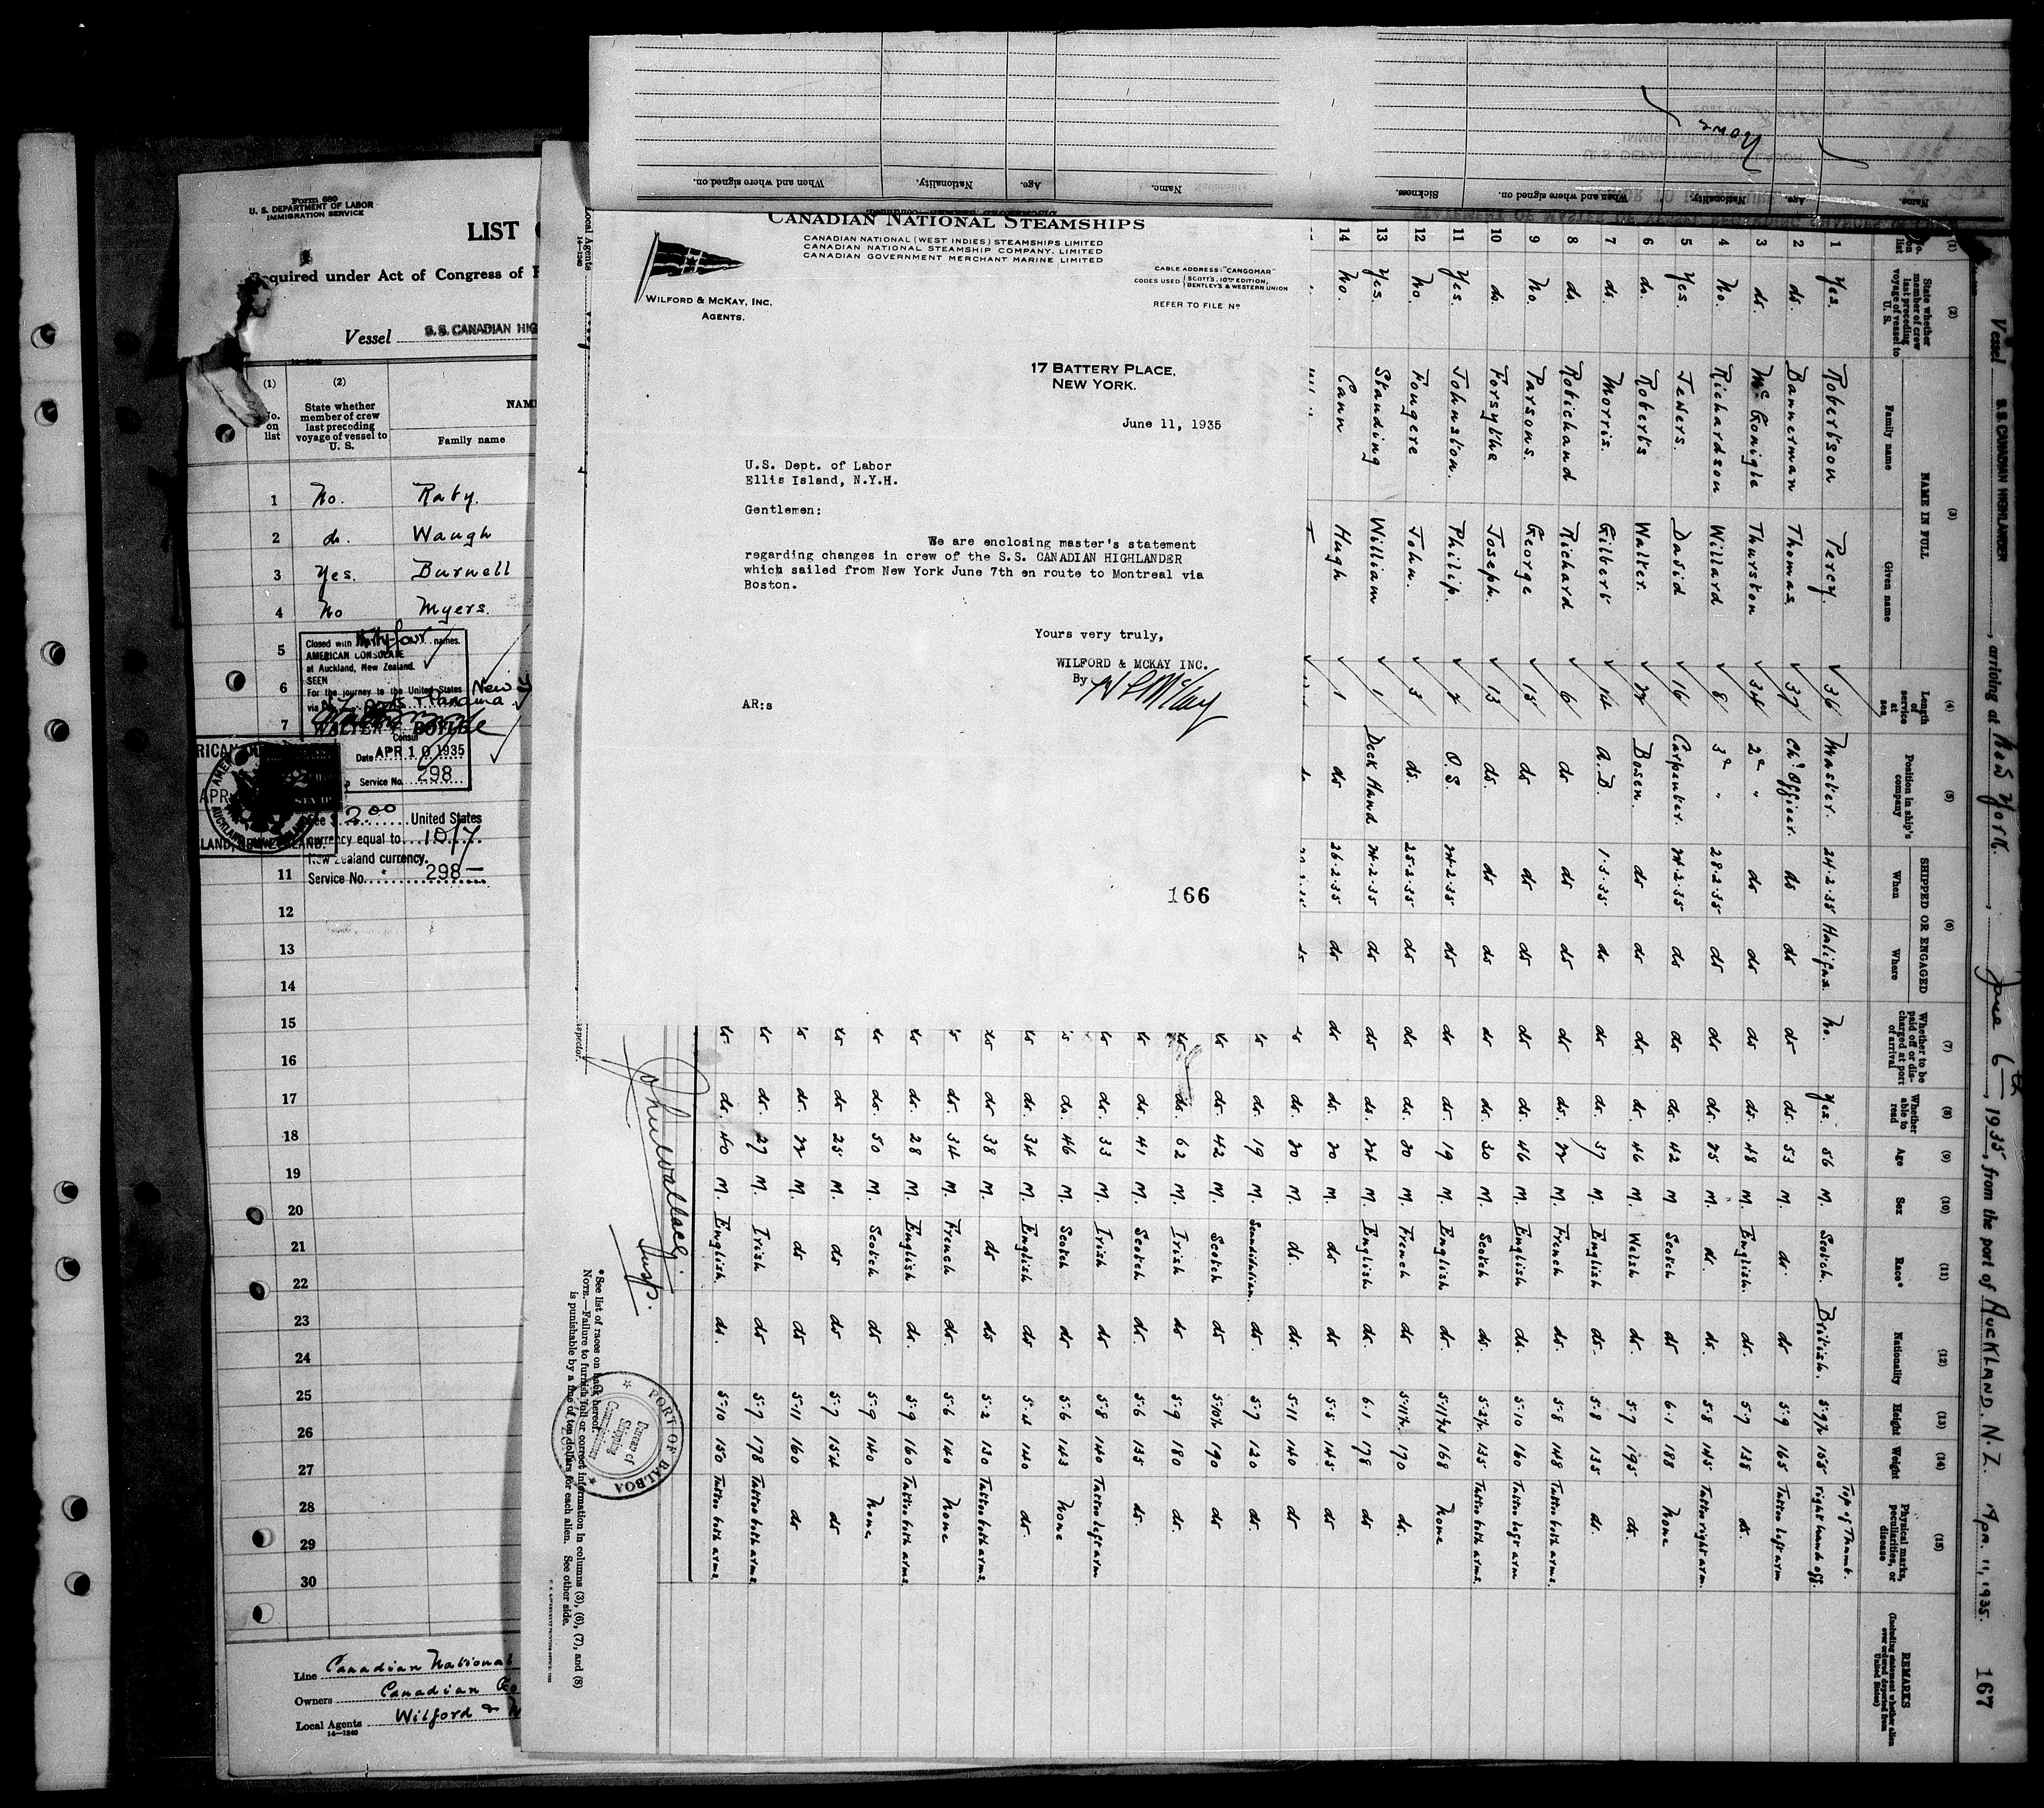 Form 680
U. S. DEPARTMENT OF LABOR
IMMIGRATION SERVICE
LIST
Required under Act of Congress of
Vessel S.S. CANADIAN HIG
(1) (2)
No. on list
State whether member of crew last preceding voyage of vessel to U. S.
NAM
Family name
1 No. Raby.
2 do. Waugh
3 Yes. Burnell
4 No Myers.
5
6
7
11
12
13
14
15
16
17
18
19
20
21
22
23
24
25
26
27
28
29
30
Closed with fifty four names.
AMERICAN CONSULATE
at Auckland, New Zealand.
SEEN
For the journey to the United States New Y
via Panama
WALTER F. BOYLE
Consul
Date APR 10 1935
Service No. 298
Fee $ 2.00 United States
currency equal to 10/7
New Zealand currency.
Service No. 298—
Line Canadian National
Owners Canadian Go
Local Agents Wilford &
14—1240
Local Agents
14-1240
CANADIAN NATIONAL STEAMSHIPS
CANADIAN NATIONAL (WEST INDIES) STEAMSHIPS LIMITED
CANADIAN NATIONAL STEAMSHIP COMPANY, LIMITED
CANADIAN GOVERNMENT MERCHANT MARINE LIMITED
CABLE ADDRESS: "CANGOMAR"
CODES USED SCOTT'S, 10TH EDITION,
BENTLEY'S & WESTERN UNION
REFER TO FILE No
WILFORD & McKAY, INC.
AGENTS.
17 BATTERY PLACE,
NEW YORK.
June 11, 1935
U.S. Dept. of Labor
Ellis Island, N.Y.H.
Gentlemen:
We are enclosing master's statement
regarding changes in crew of the S.S. CANADIAN HIGHLANDER
which sailed from New York June 7th en route to Montreal via
Boston.
Yours very truly,
WILFORD & MCKAY INC.
By
AR:s
166
Name. Age. Nationality. When and where signed on.
Name. Age. Nationality. When and where signed on. Sickness.
None
Vessel S.S. CANADIAN HIGHLANDER, arriving at New York, June 6th, 1935, from the port of AUCKLAND, N.Z. Apr. 11, 1935.
167
(1) (2) (3) (4) (5) (6) (7) (8) (9) (10) (11) (12) (13) (14) (15)
No. on list
State whether member of crew last preceding voyage of vessel to U. S.
NAME IN FULL
Family name
Given name
Length of service at sea
Position in ship's company
SHIPPED OR ENGAGED
When
Where
Whether to be paid off or discharged at port of arrival
Whether able to read
Age
Sex
Race*
Nationality
Height
Weight
Physical marks, peculiarities, or disease
REMARKS
(Including statement whether alien ever ordered deported from United States)
1 Yes. Robertson Percy. 36 Master. 24.2.35 Halifax. No. Yes. 56 M. Scotch. British. 5-9½ 155 Top of Thumb. right hand off.
2 do. Bannerman Thomas. 37 Ch. Officer. do do do do. 53 M. do. do 5-9 165 Tattoo left arm
3 do. McGonigle Thurston 34 2nd " do do do do. 48 M. English. do. 5-7 138 do.
4 No. Richardson Willard 8 3rd " 28.2.35 do do do. 25 M. do. do. 5-8 145 Tattoo right arm.
5 Yes. Jewers. David 16 Carpenter. 24.2.35 do do do. 42 M Scotch do 6-1 188 None
6 do. Roberts Walter. 22 Bosen. do do do do. 46 M. Welsh do. 5-7 195 do.
7 do. Morris. Gilbert 14 A.B. 1.3.35 do do do. 37 M. English do. 5-8 135 do.
8 do. Robichaud Richard 6 do do do do do. 22 M. French do. 5-8 148 Tattoo both arms.
9 No. Parsons. George 15 do do do do do. 46 M. English do. 5-10 160 Tattoo left arm
10 do. Forsythe Joseph. 13 do. do do do do. 30 M. Scotch do. 5-2½ 135 Tattoo both arms.
11 Yes. Johnston. Philip. 2 O.S. 24.2.35 do do do. 19 M. English do. 5-11½ 168 None
12 No. Fougere John. 3 do. 25.2.35 do do do. 20 M. French do 5-11½ 170 do.
13 Yes. Standing William 1 Deck Hand 24.2.35 do do do. 24 M. English do. 6.1 178 do
14 No. Cann Hugh 1 do 26.2.35 do do do. 20 M. do do. 5-5 145 do
do. 20 M. do. do. 5-11 140 do
do. 19 M. Scandinavian. do. 5-7 130 do.
do. 42 M. Scotch do 5-10½ 190 do
do. 62 M. Irish do 5-9 180 do.
do. 41 M. Scotch do. 5-6 135 do.
do. 33 M. Irish do 5-8 140 Tattoo left arm
do. 46 M. Scotch do 5-6 143 None
do. 34 M. English do 140 do.
do 38 M. do do 5-2 130 Tattoo both arms.
do. 34 M. French do. 5-6 140 None
do. 28 M. English do. 5-9 160 Tattoo both arms
do. 50 M. Scotch do 5-9 140 None
do 25 M. do do 5-7 154 do
do. 22 M. do do 5-11 160 do
do. 27 M. Irish do 5-7 178 Tattoo both arms.
do. 40 M. English do. 5-10 150 Tattoo both arms
John Wallace
Insp.
PORT OF BALBOA
*See list of races on back hereof.
NOTE.—Failure to furnish full or correct information in columns (3), (6), (7), and (8)
is punishable by a fine of ten dollars for each alien. See other side.